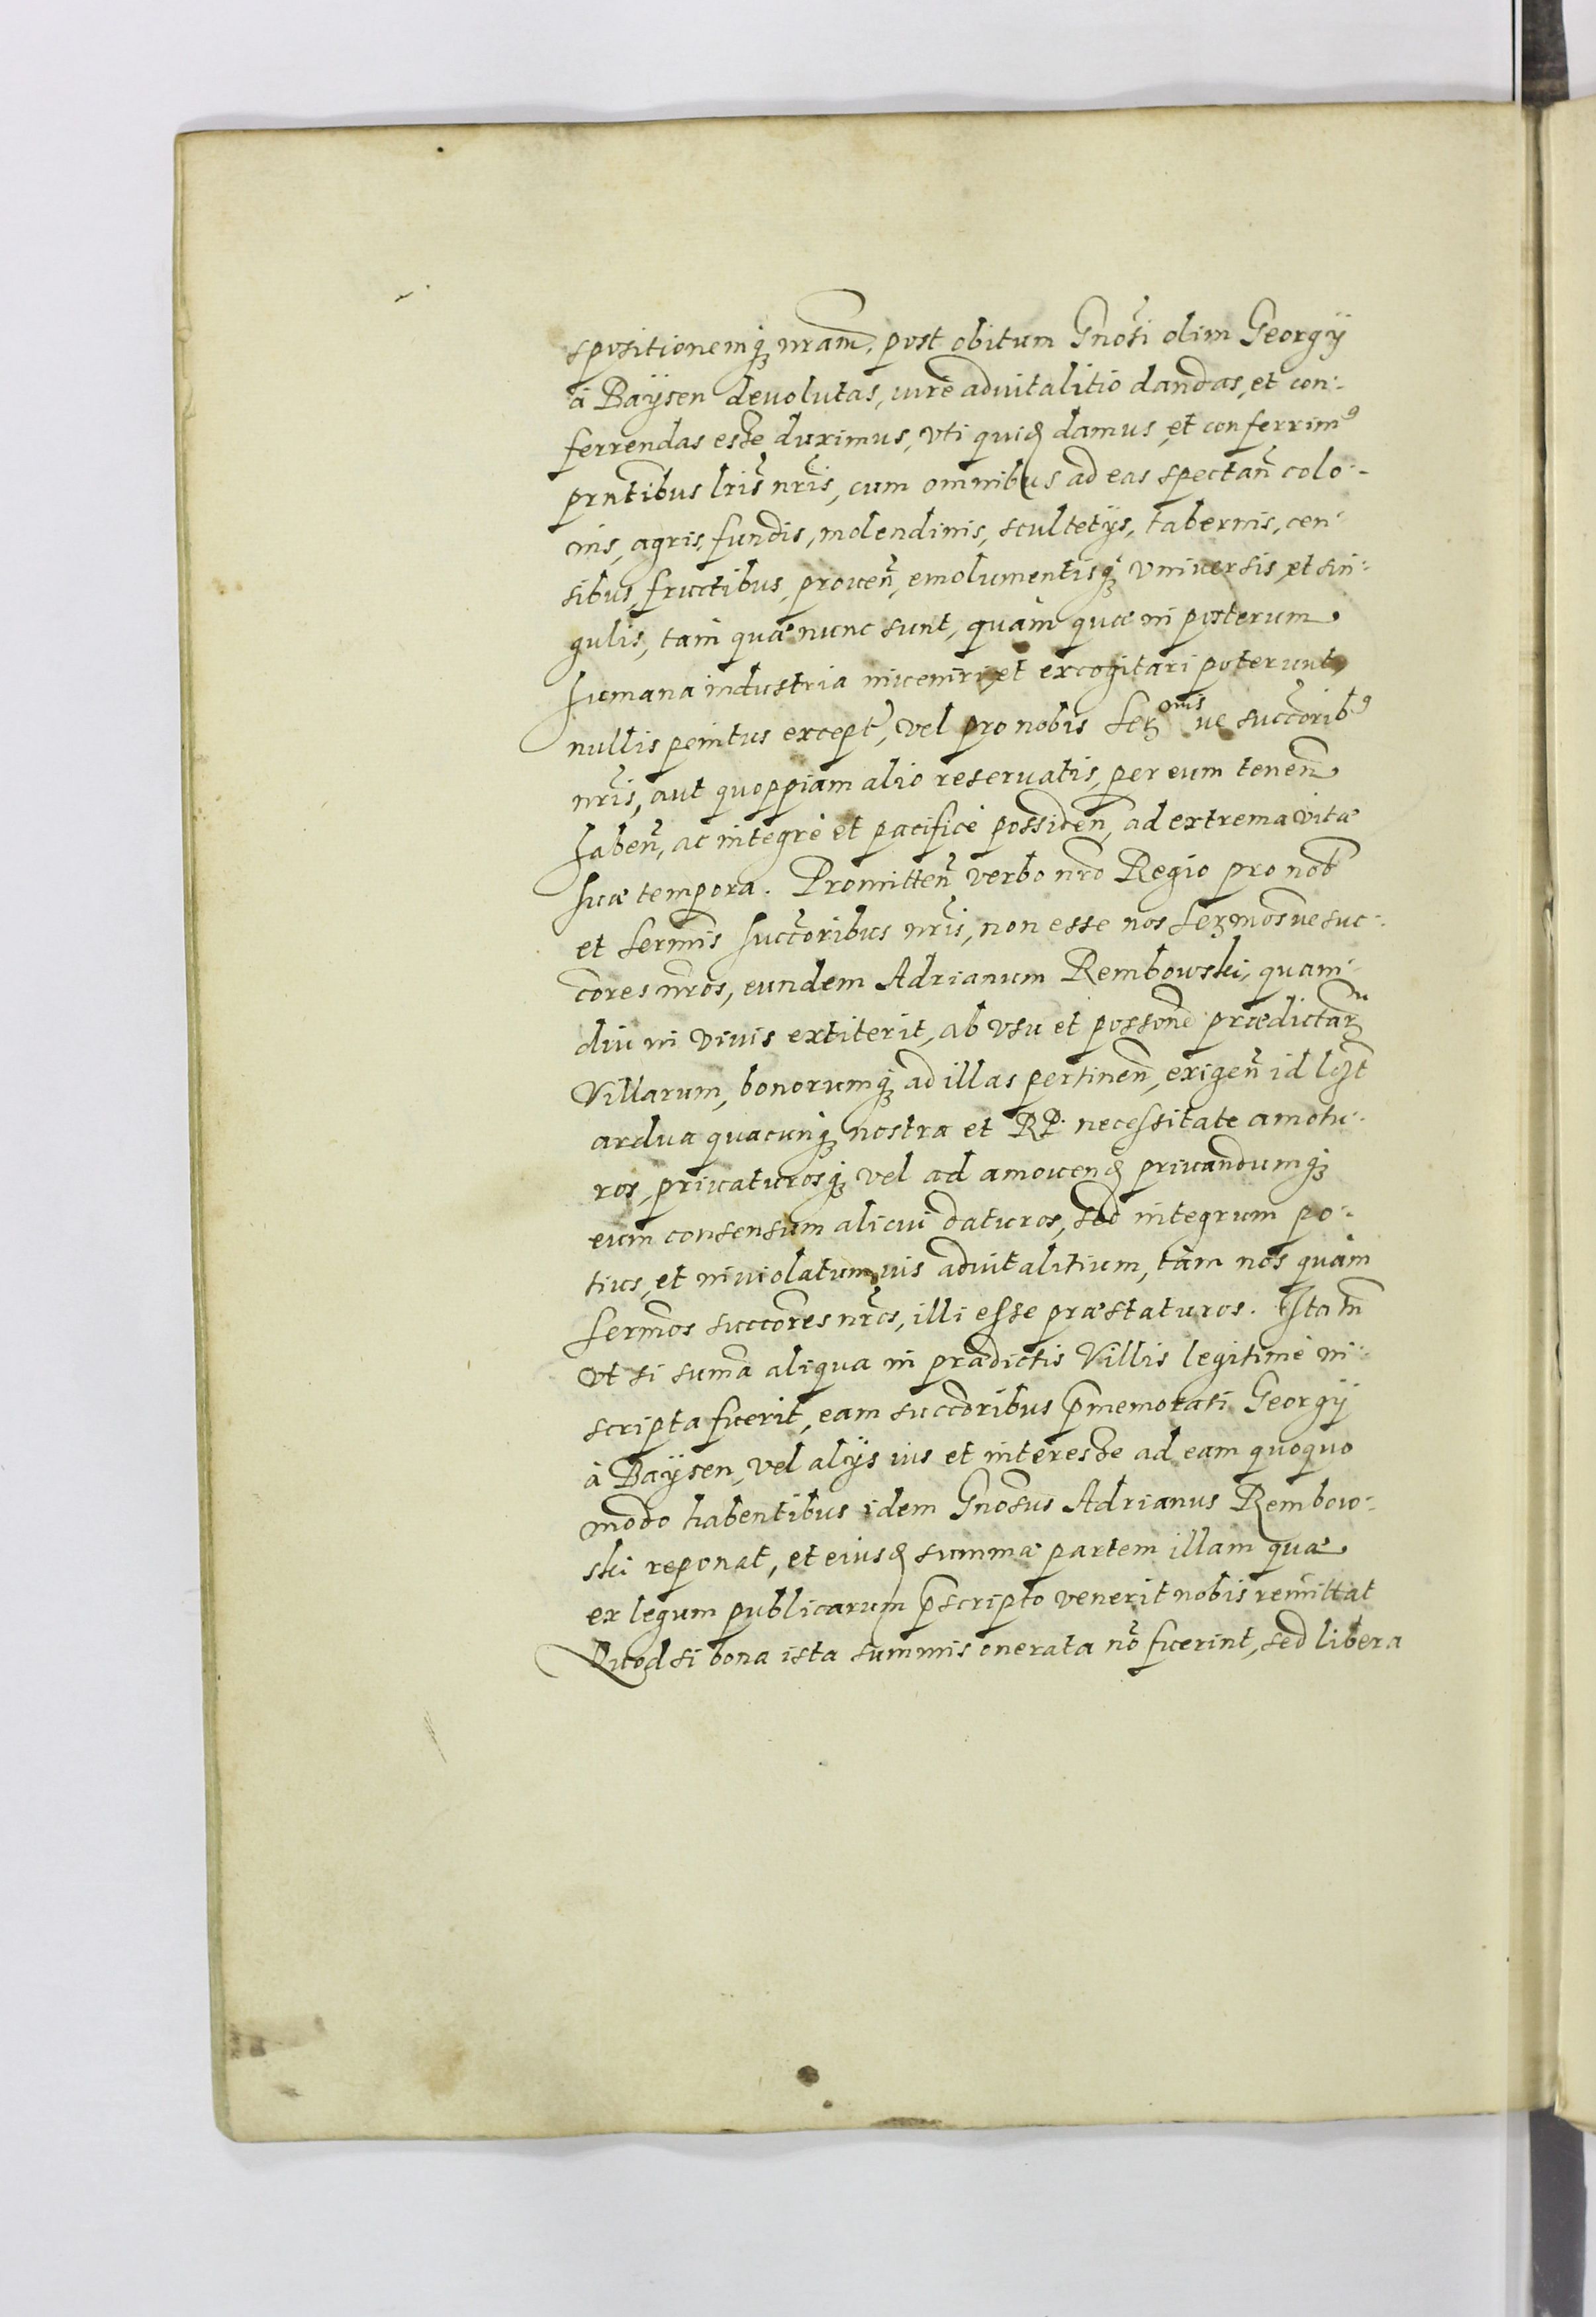 spositionemq́ʒ nram, post obitum Gnosi olim Georgÿ
à Baÿsen deuolutas, iure aduitalitio dandas, et con:
ferrendas esse duximus, vti quidē damus, et conferrimꝰ
pŕntibus lris nris, cum omnibus ad eas spectañ colo:
nis, agris, fundis, molendinis, scultetÿs, tabernis, cen:
sibus, fructibus, proueñ, emolumentisq́ʒ vniuersis, et sin:
gulis, tam quæ nunc sunt, quàm quæ in posterum
humana industria inueniri, et excogitari poterunt,
nullis penitus except̃, vel pro nobis Serᵐⁱˢ ue succoribꝰ
nris, aut quoppiam alio reseruatis, per eum teneñ
habeñ, ac integrè et pacificè possideñ, ad extrema vitæ
suæ tempora. Promitteñ verbo nro Regio pro nob
et sermis succoribus nris, non esse nos sermosue suc:
cores nros, eundem Adrianum Rembowski, quam:
diu in viuis extiterit, ab vsu et possone prædictarũ
Villarum, bonorumq́ʒ ad illas pertineñ, exigeñ id licet
ardua quacunq́ʒ nostra et RP. necessitate amotu:
ros, priuaturosq́ʒ vel ad amouendū priuandumq́ʒ
eum consensum alicui daturos, sed integrum po:
tius, et inuiolatum ius aduitalitium, tàm nos quàm
sermos succores nros, illi esse præstaturos. Ita tñ
vt si suma aliqua in prædictis Villis legitimè in:
scripta fuerit, eam succoribus p̃memorati Georgÿ
à Baÿsen, vel alÿs ius et interesse ad eam quoquo
modo habentibus idem Gnosus Adrianus Rembow:
ski reponat, et eiusdē summæ partem illam quæ
ex legum publicarum p̃scripto venerit nobis remittat
Quod si bona ista summis onerata nō fuerint, sed libera